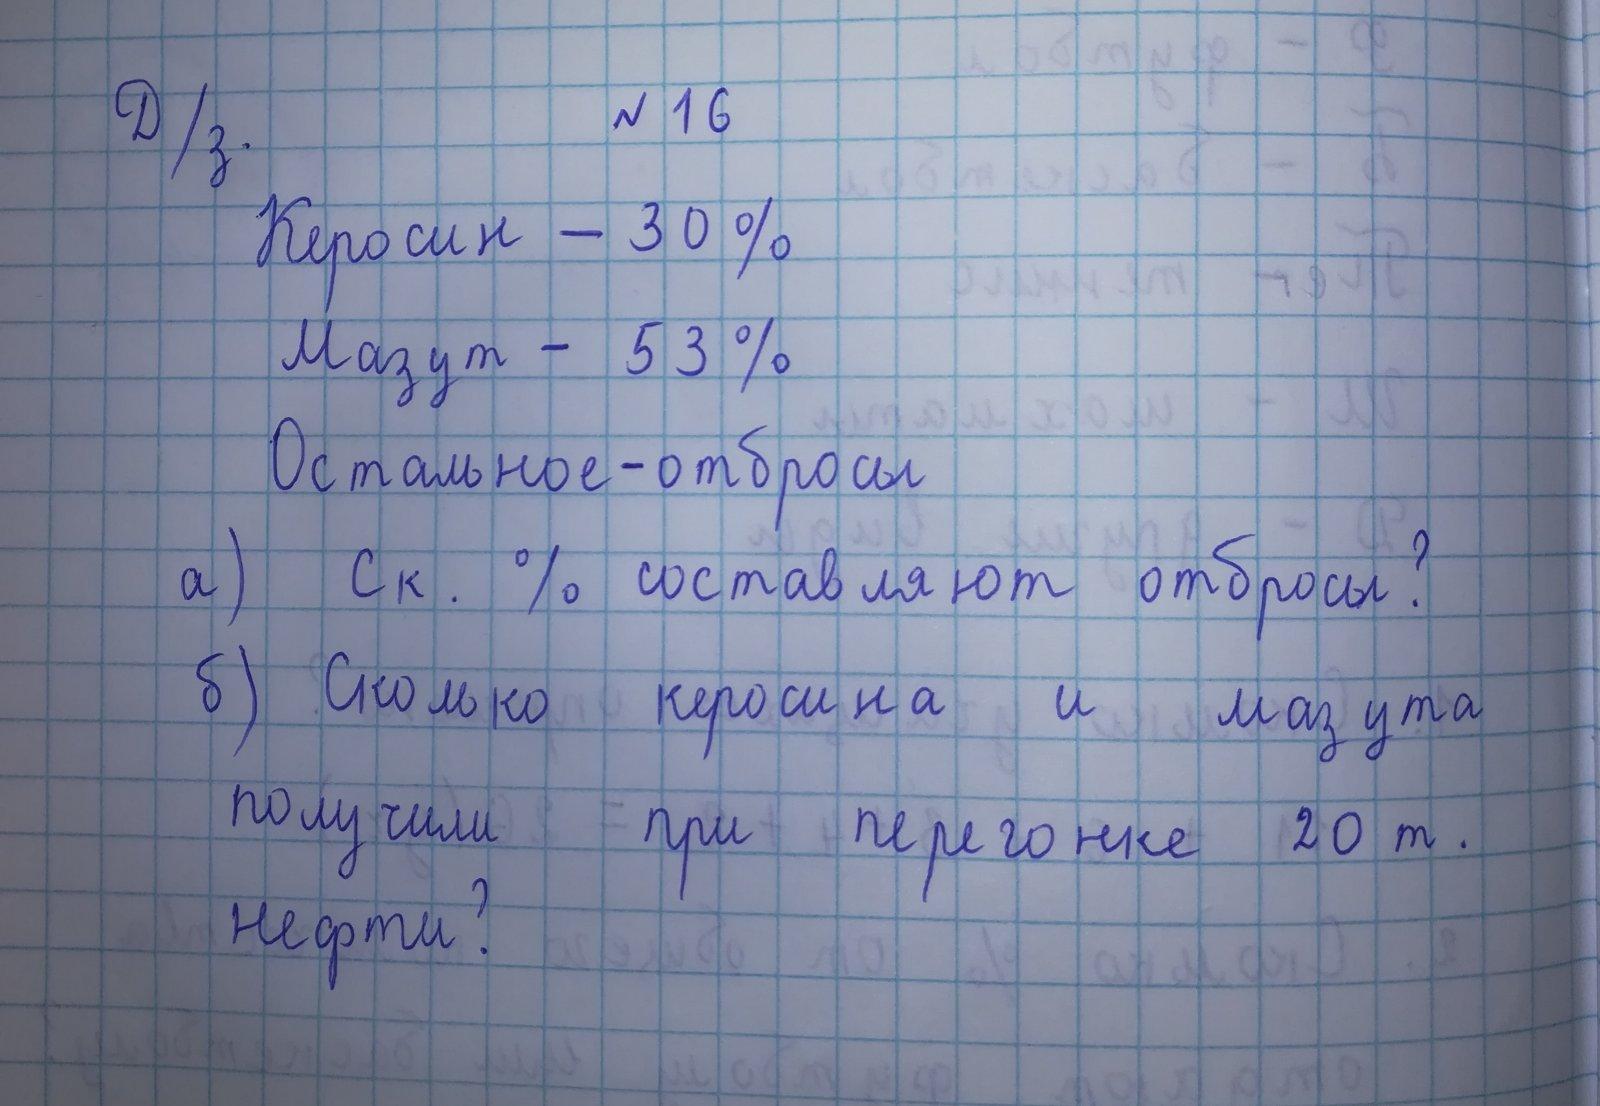 Д/з. № 16
Керосин – 30%
Мазут – 53%
Остальное-отбросы
а) Ск. % составляют отбросы?
б) Сколько керосина и мазута
получили при перегонке 20 т.
нефти?